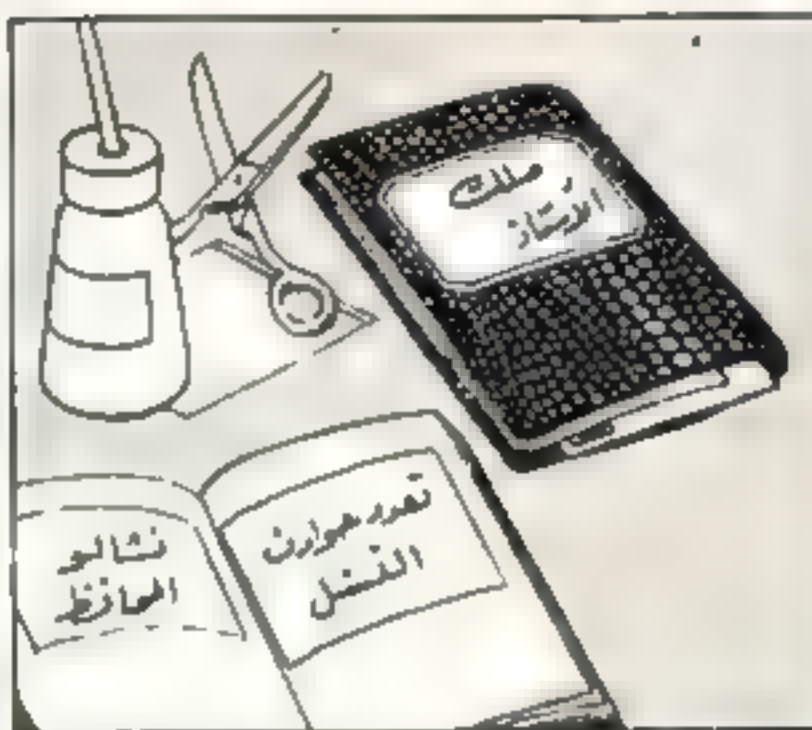 ملك
الأستاذ
تعدد حوادث
النشل
نشالو
المحافظ